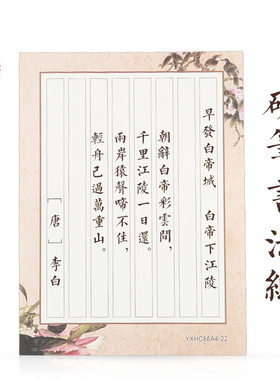 硬筆書法
早發白帝城 白帝下江陵
朝辭白帝彩雲間,
千里江陵一日還。
兩岸猿聲啼不住,
輕舟已過萬重山。
[唐] 李白
YXHC68A4-22